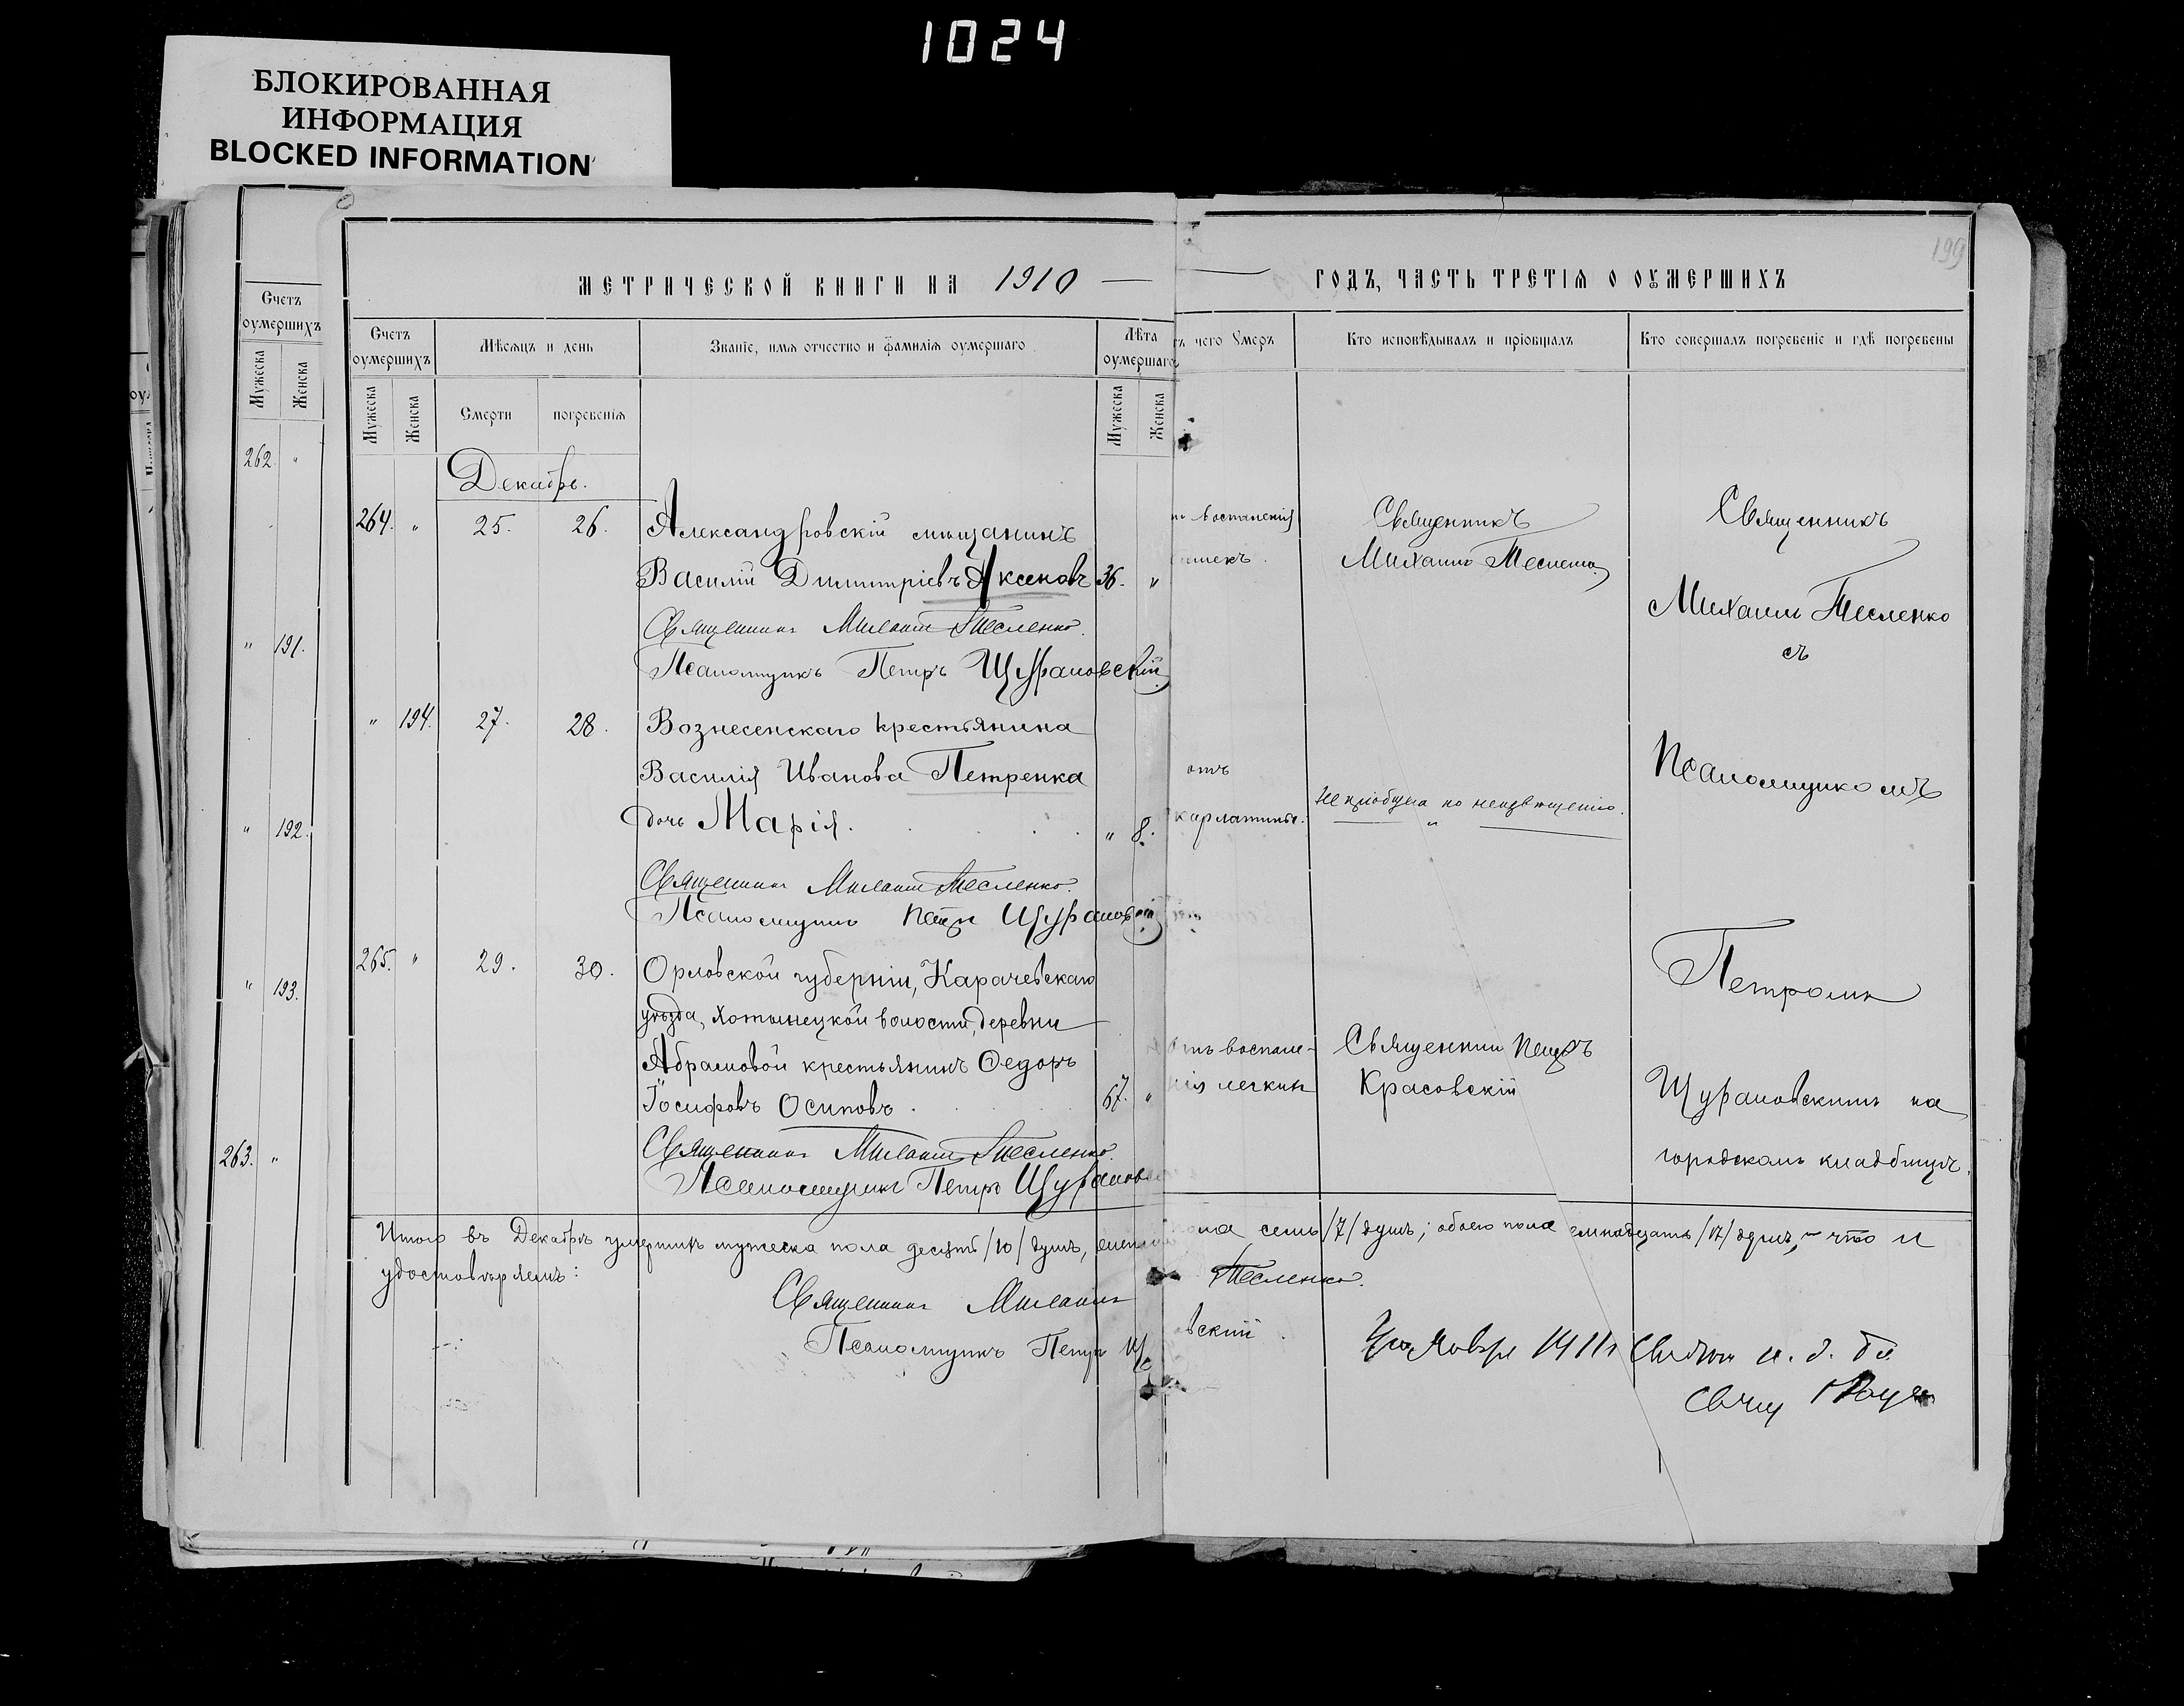 1024
БЛОКИРОВАННАЯ
ИНФОРМАЦИЯ
BLOCKED INFORMATION
199
МЕТРИЧЕСКОЙ КНИГИ НА 1910
ГОДЪ, ЧАСТЬ ТРЕТІЯ О ОУМЕРШИХЪ
Счетъ
оумершихъ
Мужеска
Женска
262. "
" 191.
" 192.
" 193.
263. "
Счетъ
оумершихъ
Мѣсяцъ и день
Званіе, имя отчество и фамилія оумершаго
Лѣта
оумершаго
чего Умеръ
Кто исповѣдывалъ и пріобщалъ
Кто совершалъ погребеніе и гдѣ погребены
Мужеска
Женска
Смерти
погребенія
Мужеска
Женска
Декабрь.
264. " 25. 26. Александровскій мѣщанинъ
Василій Димитріевъ Аксеновъ 36. "
Священникъ Михаилъ Тесленко.
Псаломщикъ Петръ Щурановскій
воспаленія
Священникъ
Михаилъ Тесленко
" 194. 27. 28. Вознесенскаго крестьянина
Василія Иванова Петренка
дочь Марія. " 8.
Священникъ Михаилъ Тесленко.
Псаломщикъ Петръ Щурановскій
отъ
скарлатины.
Не пріобщена по неизвѣщенію.
265. " 29. 30. Орловской губерніи, Карачевскаго
уѣзда, Хотынецкой волости, деревни
Абрамовой крестьянинъ Ѳедоръ
Іосифовъ Осиповъ. 67. "
Священникъ Михаилъ Тесленко.
Псаломщикъ Петръ Щурановскій
Отъ воспале-
нія легкихъ
Священникъ Петръ
Красовскій
Священникъ
Михаилъ Тесленко
съ
Псаломщикомъ
Петромъ
Щурановскимъ на
городскомъ кладбищѣ.
Итого въ Декабрѣ умершихъ мужеска пола десять /10/ душъ, женска пола семь /7/ душъ; обоего пола семнадцать /17/ душъ, что и
удостовѣряемъ:
Священникъ Михаилъ Тесленко.
Псаломщикъ Петръ Щурановскій.
Января 1911